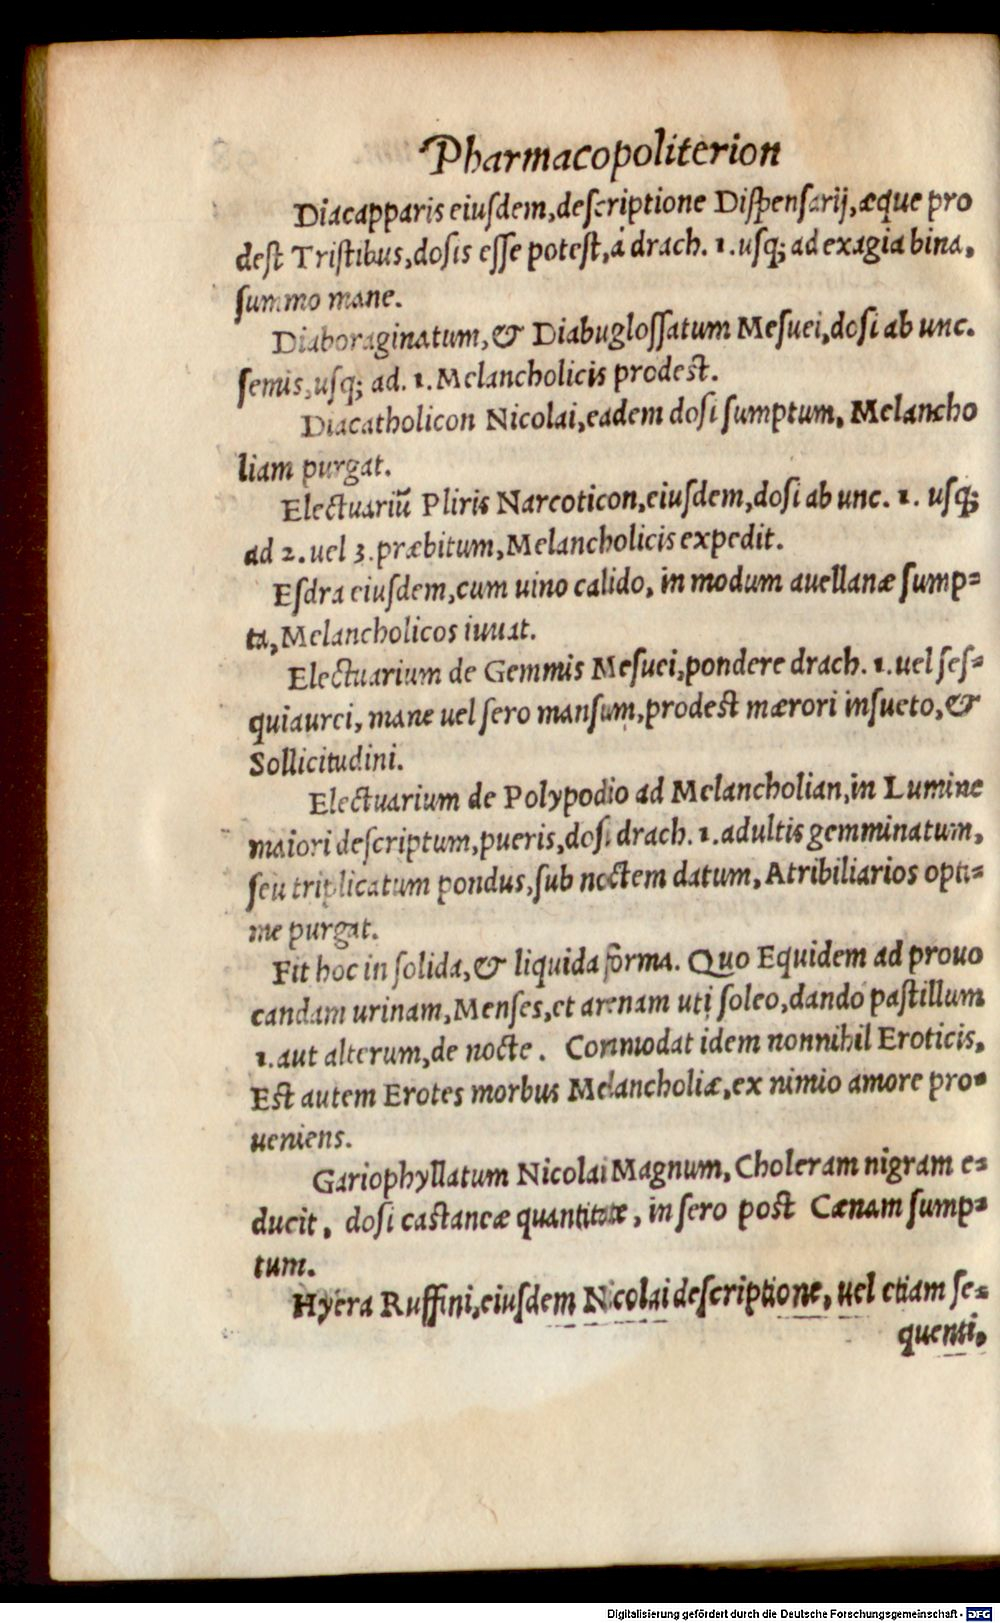 Pharmacopoliterion
Diacapparis eiuſdem,deſcriptione Diſpenſarij,æque pro
deſt Triſtibus,doſis eſſe poteſt,à drach. 1.uſq; ad exagia bina,
ſummo mane.
Diaboraginatum,& Diabugloſſatum Meſuei,doſi ab unc.
ſemis,uſq; ad. 1.Melancholicis prodest.
Diacatholicon Nicolai,eadem doſi ſumptum, Melancho
liam purgat.
Electuariũ Pliris Narcoticon,eiuſdem,doſi ab unc. 1. uſq;
ad 2.uel 3.præbitum,Melancholicis expedit.
Eſdra eiuſdem,cum uino calido, in modum auellanæ ſump=
ta,Melancholicos iuuat.
Electuarium de Gemmis Meſuei,pondere drach. 1.uel ſeſ=
quiaurei, mane uel ſero manſum,prodest mærori inſueto,&
Sollicitudini.
Electuarium de Polypodio ad Melancholian,in Lumine
maiori deſcriptum,pueris,doſi drach. 1.adultis gemminatum,
ſeu triplicatum pondus,ſub noctem datum, Atribiliarios opti=
me purgat.
Fit hoc in ſolida,& liquida forma. Quo Equidem ad prouo
candam urinam,Menſes,et arenam uti ſoleo,dando paſtillum
1.aut alterum,de nocte. Commodat idem nonnihil Eroticis,
Est autem Erotes morbus Melancholiæ,ex nimio amore pro=
ueniens.
Gariophyllatum Nicolai Magnum, Choleram nigram e=
ducit, doſi castaneæ quantitate, in ſero post Cænam ſump=
tum.
Hyera Ruffini,eiuſdem Nicolai deſcriptione, uel etiam ſe=
quenti,
Digitalisierung gefördert durch die Deutsche Forschungsgemeinschaft - DFG